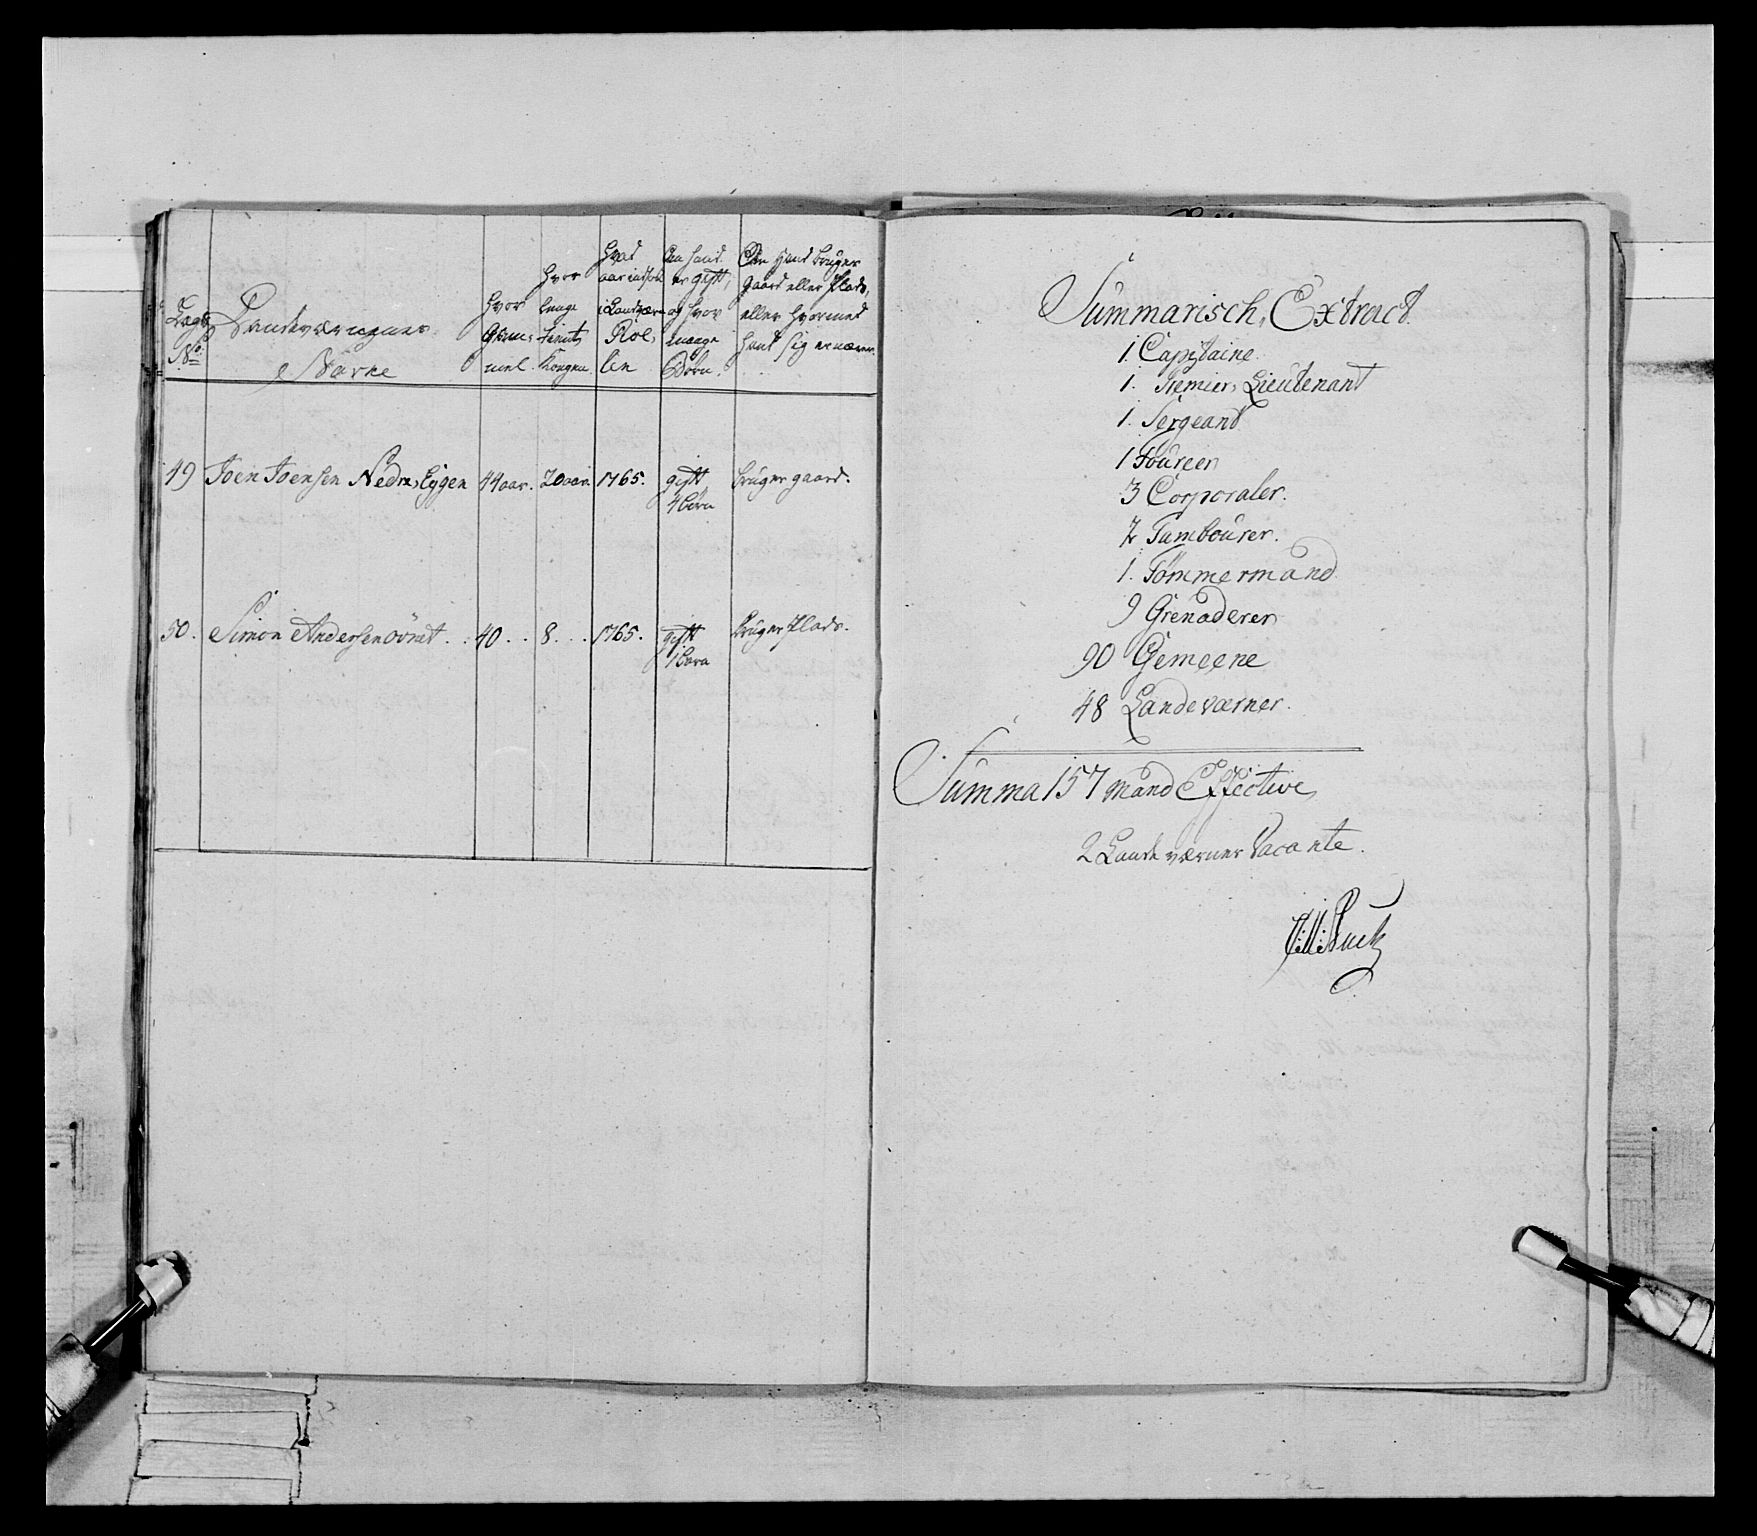 Lægds No.
Landeværnernes Navne
Hvor Gammel
Hvor lenge tient Kongen
Hvad aar indsat i Landværn Rollen
Om hand er gift, og hvor mange Børn.
Om Hand bruger gaard eller Plads, eller hvormed hand sig ernærer
49 Joen Joensen Nedre, 44 aar. 20 aar. 1765. gift 4 børn bruger gaard.
50. Simon Andersen 40.. 8... 1765. gift 1 barn bruger Plads.
Summarisch, Extract.
1 Capitaine
1. Premier, Lieutenant
1. Sergeant
1 Foureer
3 Corporaler.
2 Tambourer.
1. Tømmermand
9 Grenaderer
90 Gemeene
48 Landeværner.
Summa 157 Mand Effective
2 Landeværner Vacante.